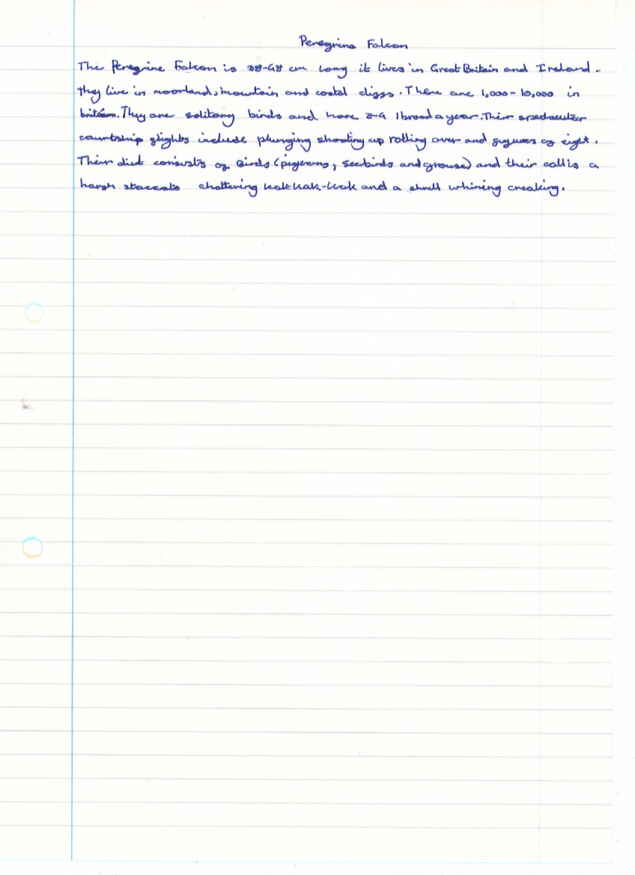 Peregrine Falcon
The Peregrine Falcon is 38-48 cm long it lives in Great Britain and Ireland.
they live in moorland, mountain and costal cliffs. There are 1,000-10,000 in
britain. They are solitary birds and have 1 brood a year. Their
courtship flights include plunging shooting up rolling over and figures of eight.
Their diet consists of Birds (pigeons, seebirds and grouse) and their call is a
harsh staccato chattering kak-kak and a shrill whining creaking.